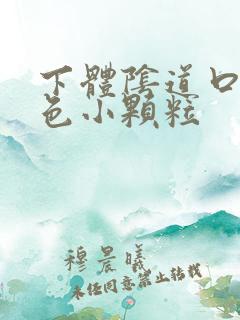 下體陰道口
色小顆粒
穆晨曦
未任同意禁止轉載